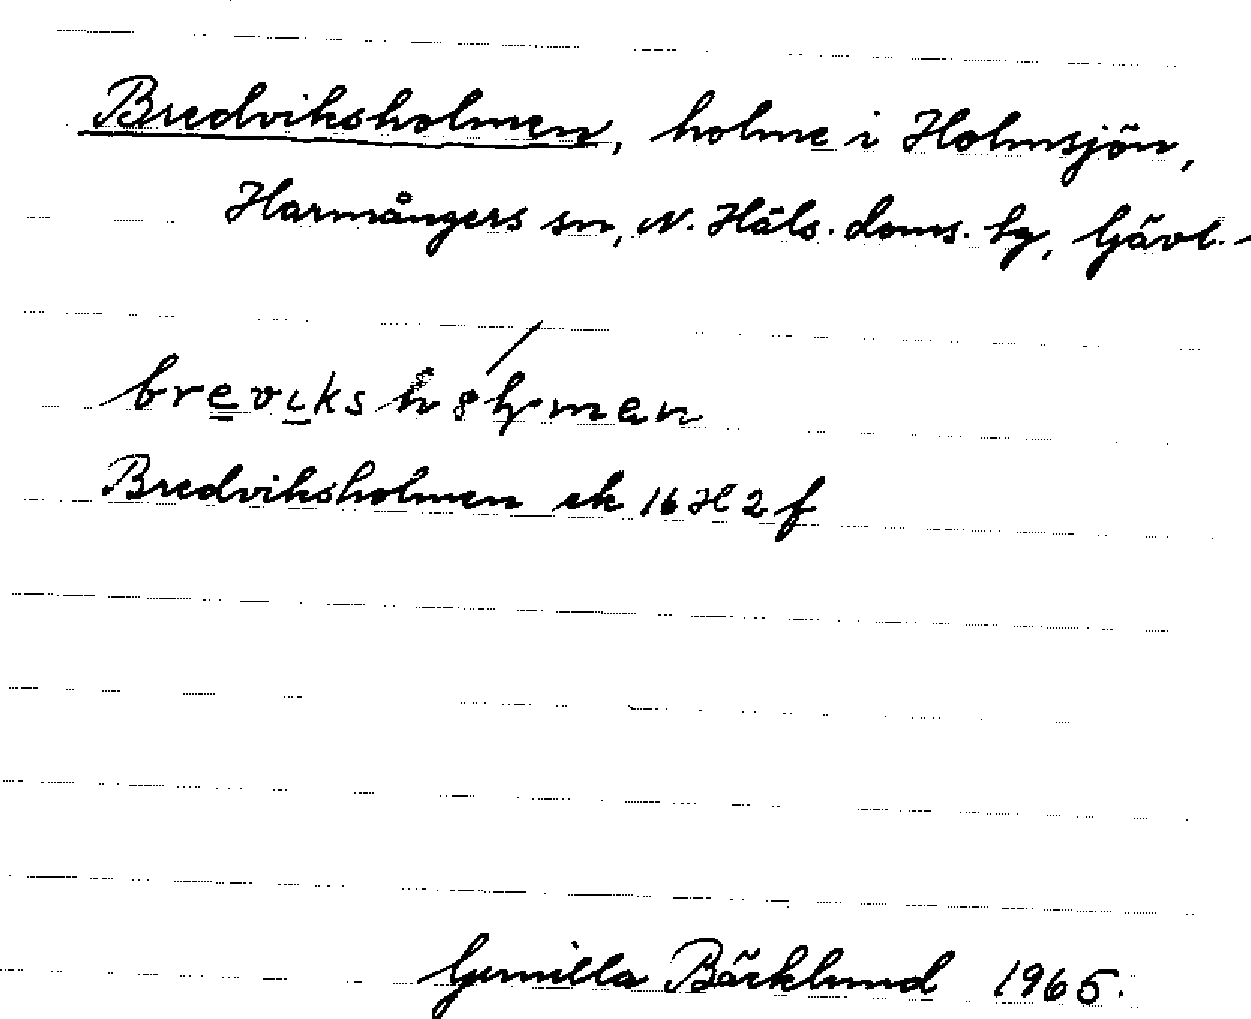 Bredviksholmen, holme i Holmsjön,
Harmångers sn, N. Häls. doms. hg, Gävl.-
Bredviksholmen ek 16 H 2 f
Gunilla Bäcklund 1965.